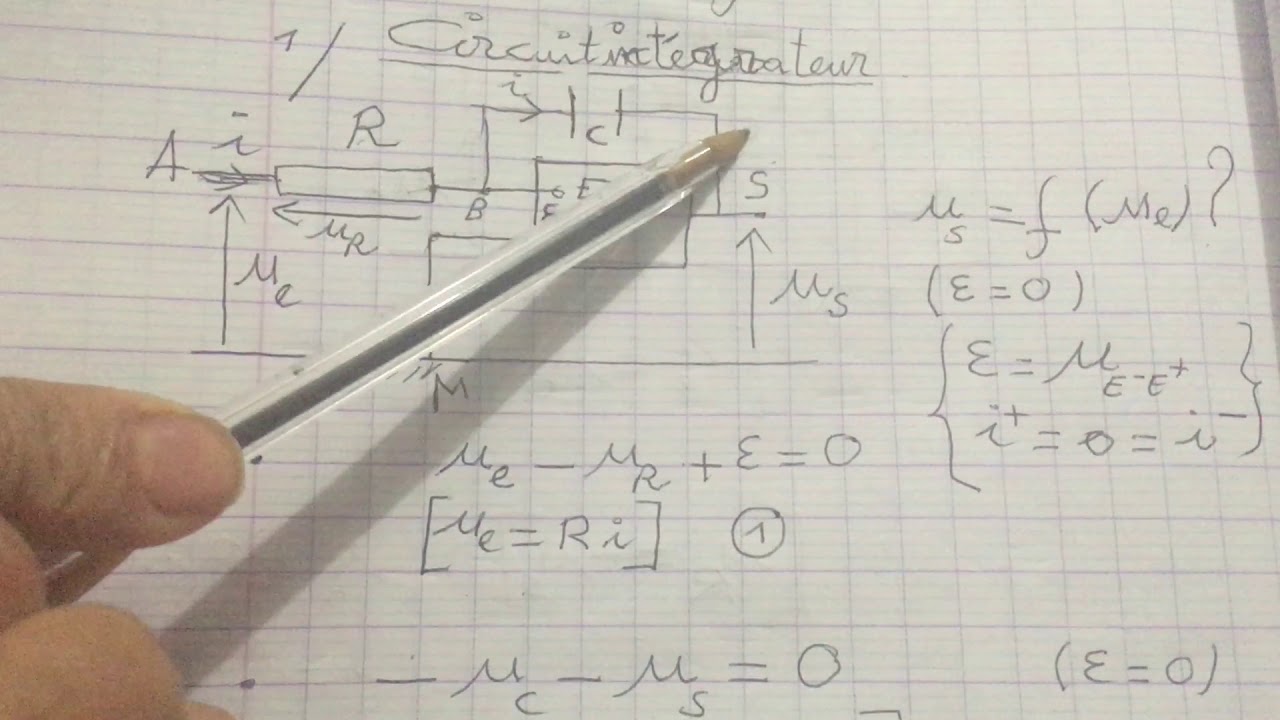 1/ Circuit intégrateur
i
A i R C
B ε E S
u_R
u_e u_s
M
u_s = f (u_e) ?
(ε = 0)
{ ε = u_E-E+
i+ = 0 = i- }
u_e - u_R + ε = 0
[u_e = R i] ①
- u_c - u_s = 0 (ε = 0)